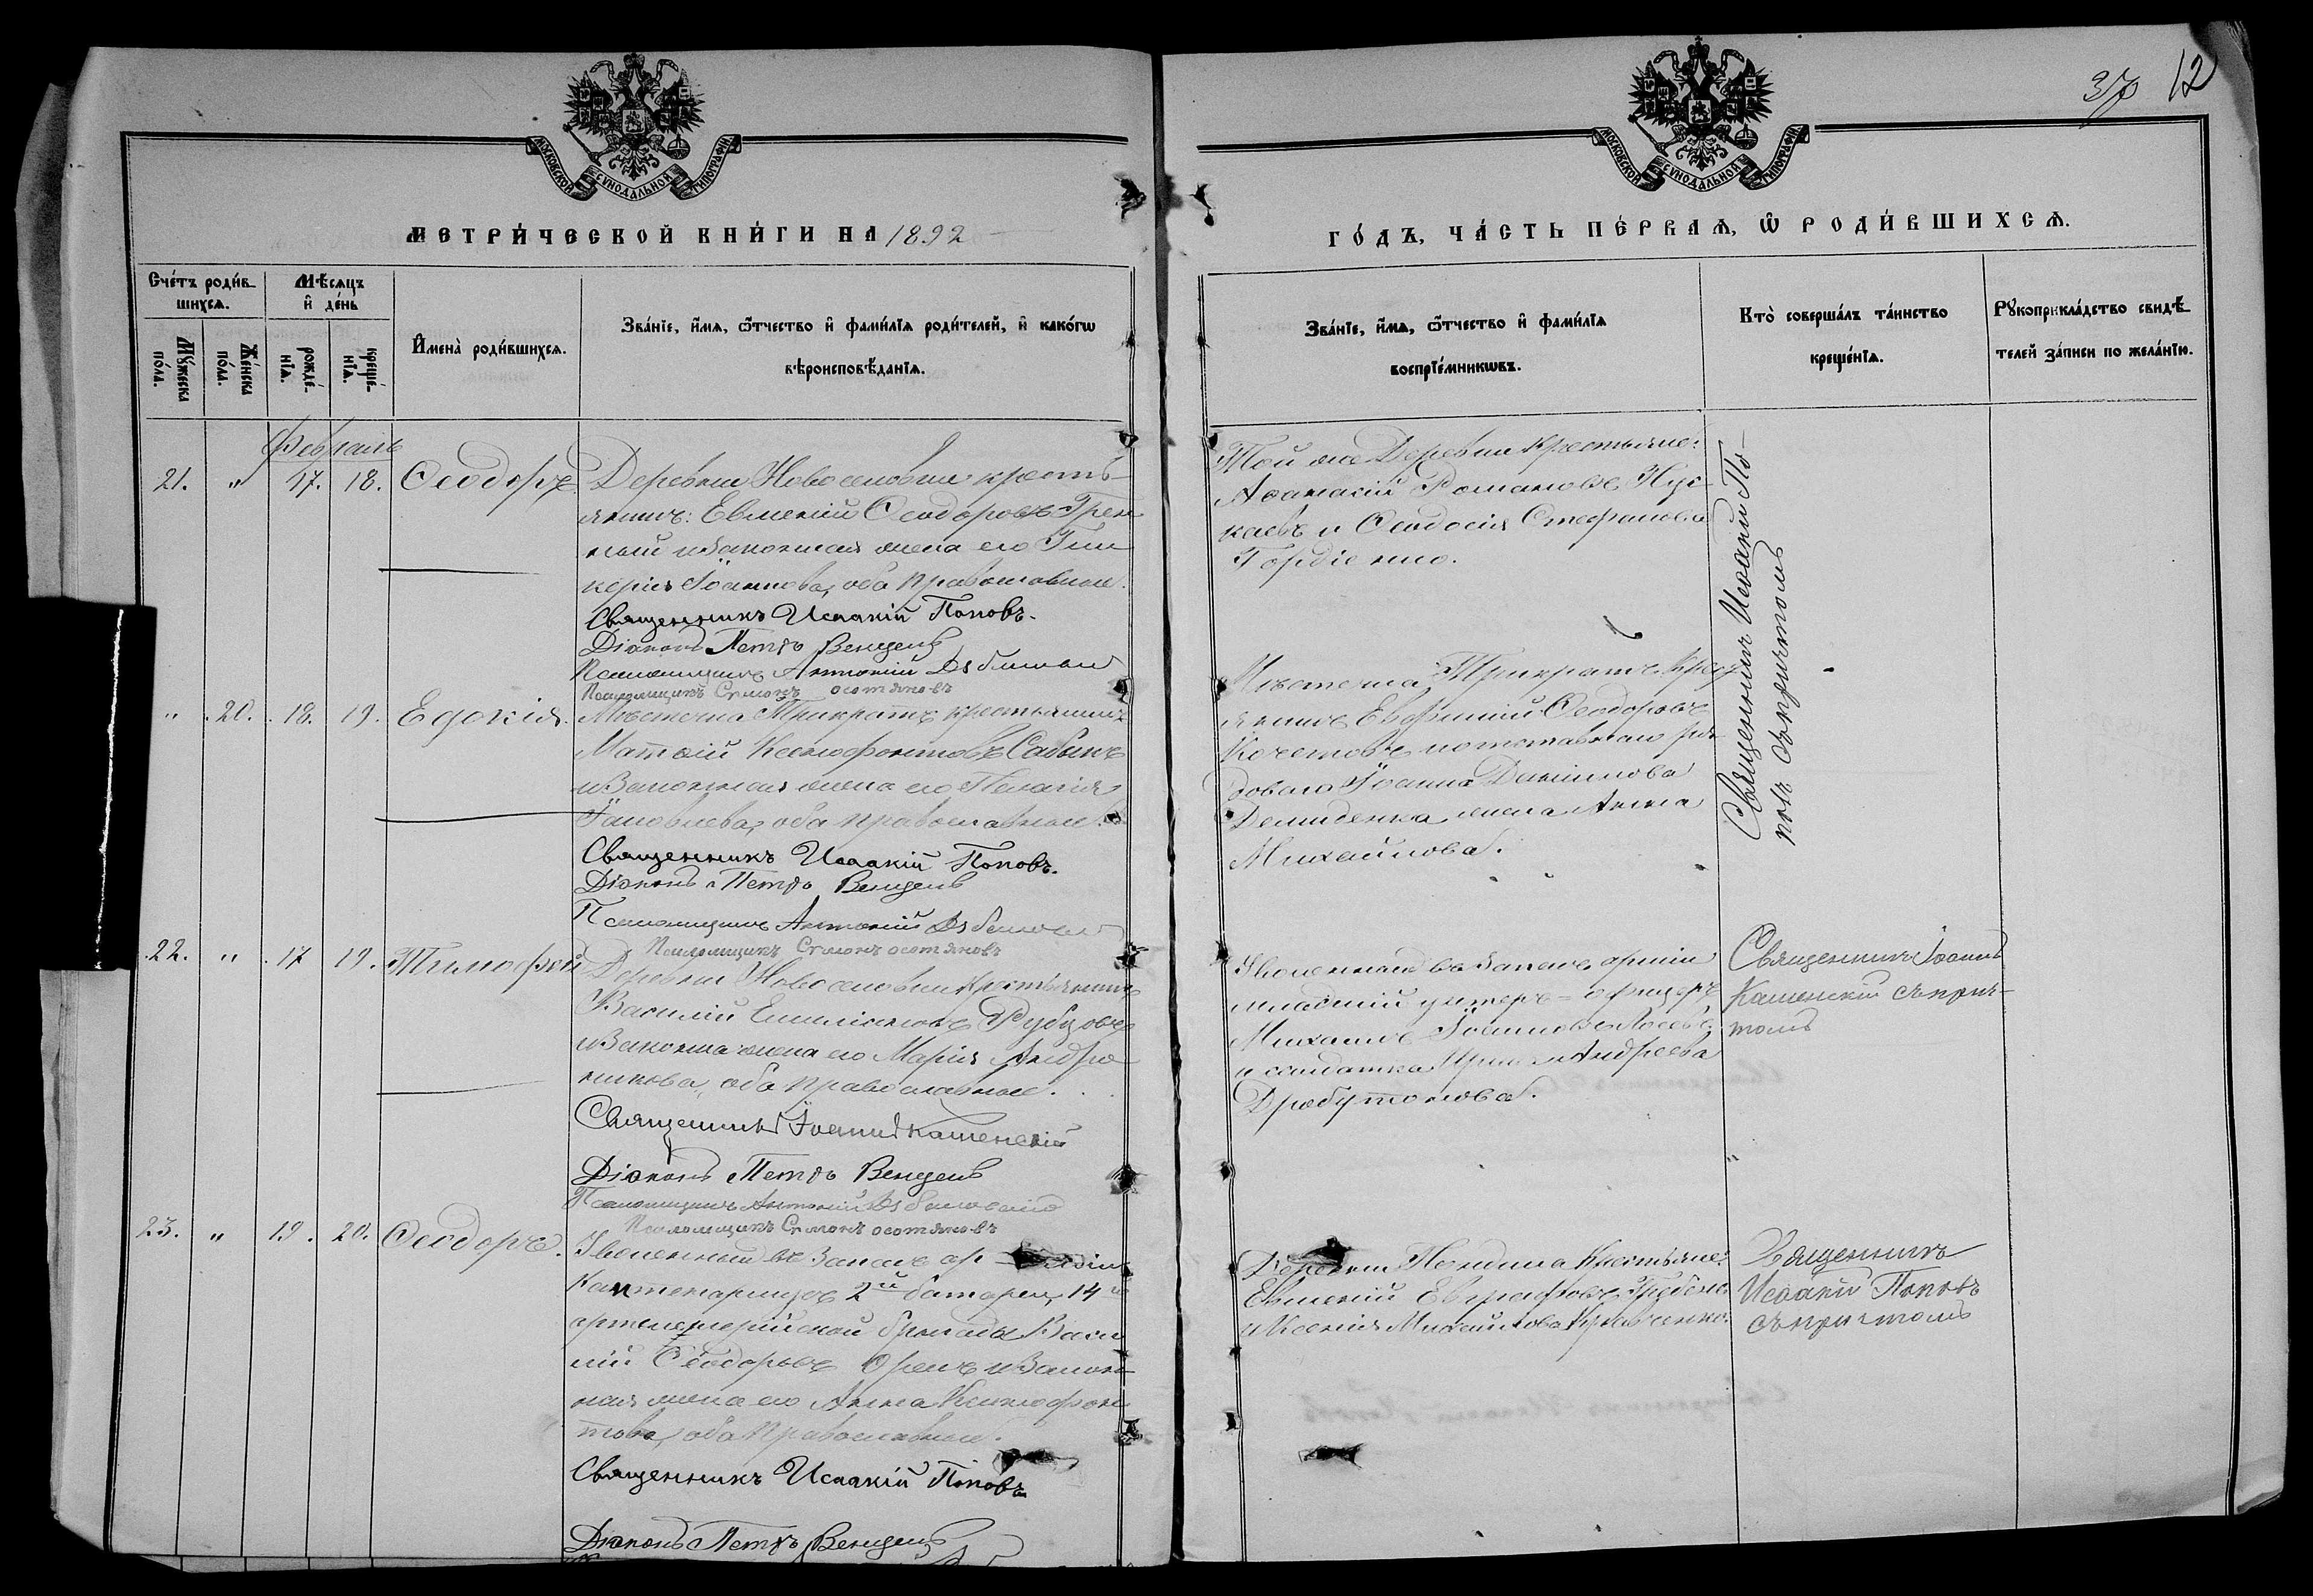 37 12
МОСКОВСКОЙ СѴНОДАЛЬНОЙ ТИПОГРАФІИ
МОСКОВСКОЙ СѴНОДАЛЬНОЙ ТИПОГРАФІИ
МЕТРИ́ЧЕСКОЙ КНИ́ГИ НА 1892
ГО́ДЪ, ЧА́СТЬ ПЕ́РВАѦ, Ѿ РОДИ́ВШИХСѦ.
Сче́тъ роди́в
шихсѧ.
Мѣ́сѧцъ
и҆ де́нь
Мꙋ́жеска
по́ла.
Же́нска
по́ла.
рожде́
нїѧ.
креще́
нїѧ.
И҆мена̀ роди́вшихсѧ.
Зва́нїе, и҆́мѧ, ѻ҆́тчество и҆ фами́лїѧ роди́телей, и҆ како́гѡ
вѣроисповѣ́данїѧ.
Зва́нїе, и҆́мѧ, ѻ҆́тчество и҆ фами́лїѧ
воспрїе́мникѡвъ.
Кто̀ соверша́лъ та́инство
креще́нїѧ.
Рꙋкоприкла́дство свидѣ́
телей за́писи по жела́нїю.
Февраль
21. " 17. 18. Ѳеодоръ
Деревни Новоселовки кресть
янинъ: Евмений Ѳеодоровъ
ный и законная жена его Гли
керія Іоаннова, оба православные.
Священникъ Исаакій Поповъ.
Діаконъ Петръ Венцель
Псаломщикъ Антоній
Псаломщикъ Сумонъ осотяновъ
Той же Деревни крестьяне:
Аѳанасій Романовъ
и Ѳеодосія Стефанова
Гордіенко.
Священникъ Исаакій По-
повъ съ причтомъ
" 20. 18. 19. Едокія.
Мѣстечка Трикратъ крестьянинъ
Матѳій Ксенофонтовъ Сабынъ
и Законная жена его Пелагія
Іаковлева, оба православные.
Священникъ Исаакій Поповъ.
Діаконъ Петръ Венцель
Псаломщикъ Антоній
Псаломщикъ Сумонъ осотяновъ
Мѣстечка Трикратъ Крес
янинъ Евфимій Ѳеодоровъ
Кочетовъ и отставнаго ря
доваго Іоанна Данилова
Демиденка жена Анна
Михайлова.
22. " 17 19. Тимофей
Деревни Новоселовки крестьянинъ
Василій Емиліановъ Рубцовъ
и Законна жена его Марія Андро
никова, оба православные.
Священникъ Іоаннъ Каменскій
Діаконъ Петръ Венцель
Псаломщикъ Антоній
Псаломщикъ Сумонъ осотяновъ
Уволенный въ запасъ арміи
младшій унтеръ-офицеръ
Михаилъ Іоанновъ
и солдатка Ирина Андреева
Священникъ Іоаннъ
Каменскій съ прич-
томъ
23. " 19. 20. Ѳеодоръ.
Уволенный въ Запасъ ар
Каптенармусъ 2й батареи, 14й
артиллерийской бригады Васи
лій Ѳеодоровъ Орелъ и Закон
ная жена его Анна Ксенофон
това, оба Православные.
Священникъ Исаакій Поповъ
Діаконъ Петръ Венцель
Деревни Крестьяне:
Евмений Евграфовъ
и Ксенія Михайлова Кравченко.
Священникъ
Исаакій Поповъ
съ причтомъ